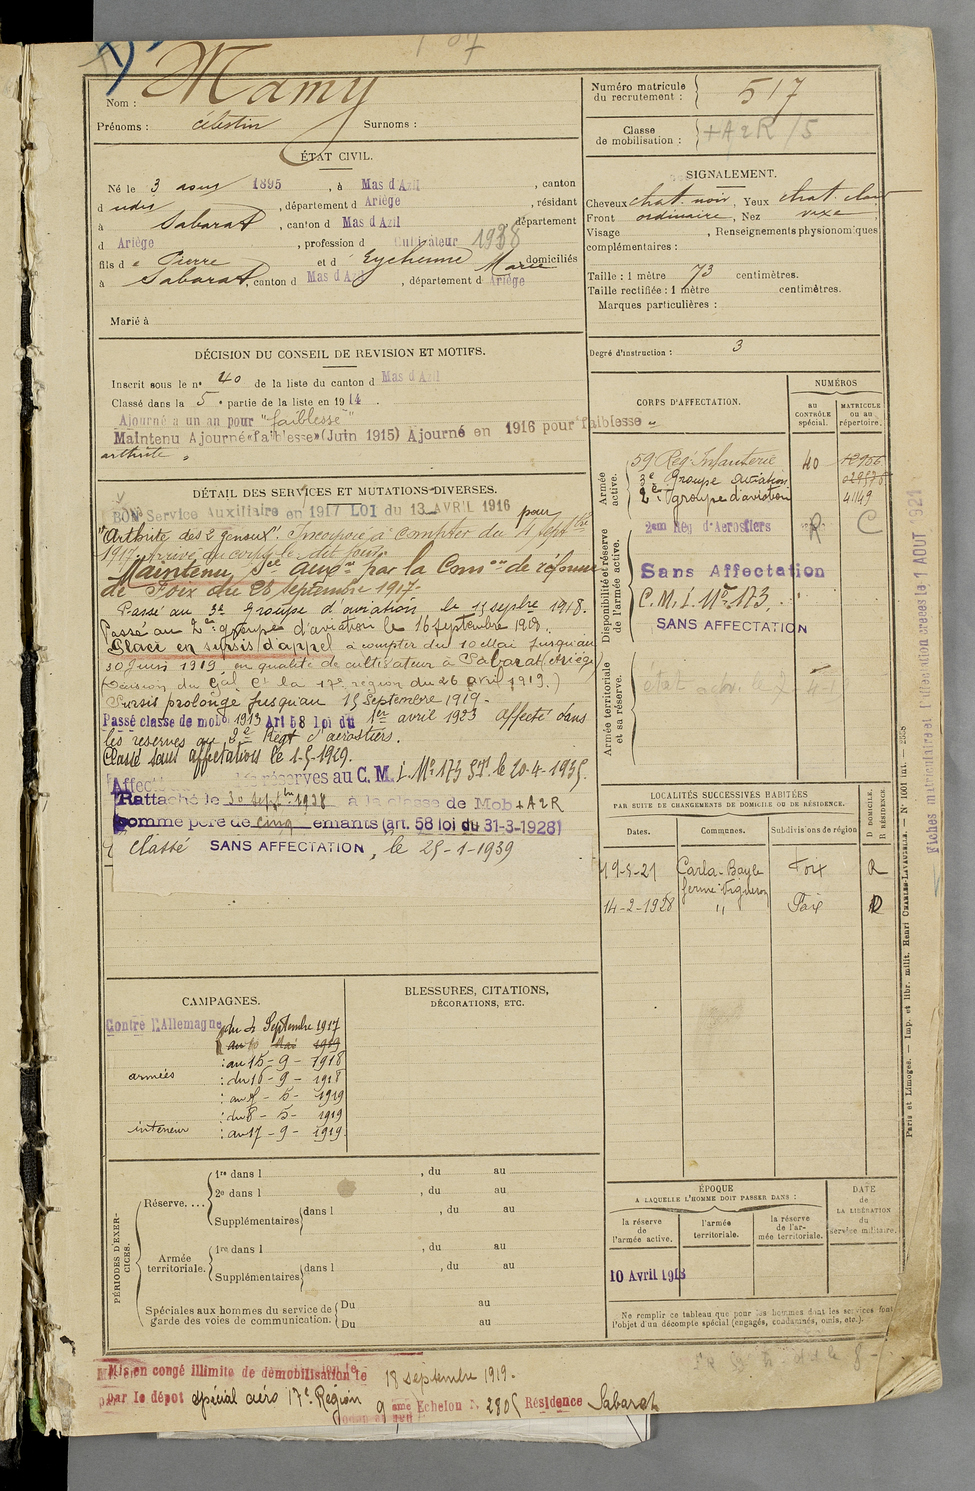 Nom : Mamy
Prénoms : Célestin Surnoms :
Numéro matricule du recrutement : 517
Classe de mobilisation : + A 2 R / 5
ÉTAT CIVIL.
Né le 3 aout 1895, à Mas d'Azil, canton
d udit, département d Ariège, résidant
à Sabarat, canton d Mas d'Azil département
d Ariège, profession d Cultivateur 1938
fils d e Pierre et d' Eychenne Marie domiciliés
à Sabarat, canton d Mas d'Azil, département d Ariège
Marié à
SIGNALEMENT.
Cheveux chat. noir, Yeux chat. clair
Front ordinaire, Nez vexe;
Visage , Renseignements physionomiques
complémentaires :
Taille : 1 mètre 73 centimètres.
Taille rectifiée : 1 mètre centimètres.
Marques particulières :
Degré d'instruction : 3
DÉCISION DU CONSEIL DE REVISION ET MOTIFS.
Inscrit sous le n° 40 de la liste du canton d Mas d'Azil
Classé dans la 5e partie de la liste en 1914.
Ajourné à un an pour "faiblesse"
Maintenu Ajourné «faiblesse» (Juin 1915) Ajourné en 1916 pour faiblesse "
arthrite "
DÉTAIL DES SERVICES ET MUTATIONS DIVERSES.
BON Service Auxiliaire en 1917 LOI du 13 AVRIL 1916 pour
"Arthrite des 2 genoux". Incorporé à compter du 4 Septbre
1917. Arrivé au corps le dit jour.
Maintenu Sce auxre par la Comon de réforme
de Foix du 28 septembre 1917.
Passé au 3e Groupe d'aviation le 15 septbre 1918.
Passé au 2e groupe d'aviation le 16 septembre 1918.
Placé en sursis d'appel à compter du 10 Mai jusqu'au
30 Juin 1919 en qualité de cultivateur à Sabarat (Ariège)
(Décision du Gal Ct la 17e région du 26 avril 1919.)
Sursis prolongé jusqu'au 15 Septembre 1919.
Passé classe de mob. 1913 Art 58 loi du 1er avril 1923 Affecté dans
les réserves au 2e Régt d'aérostiers.
Classé sans affectation le 1-5-1929.
Affecté réserves au C. M. I. No 173 le 20-4-1935.
Rattaché le 30 septbre 1938 à la classe de Mob + A 2 R
comme père de cinq enfants (art. 58 loi du 31-3-1928)
Classé SANS AFFECTATION, le 25-1-1939
CORPS D'AFFECTATION.
NUMÉROS
AU CONTRÔLE spécial.
MATRICULE ou au répertoire.
Armée active.
59e Reg. Infanterie 40
3e Groupe Aviation
2e groupe d'aviation 41149
Disponibilité et réserve de l'armée active.
2eme Rég d'Aérostiers R C
Sans Affectation
C. M. I. No 173.
SANS AFFECTATION
Armée territoriale et sa réserve.
LOCALITÉS SUCCESSIVES HABITÉES
PAR SUITE DE CHANGEMENTS DE DOMICILE OU DE RÉSIDENCE.
Dates. Communes. Subdivisions de région D DOMICILE. R RÉSIDENCE.
19-8-21 Carla-Bayle Foix R
ferme Vigneron
14-2-1928 " Foix D
CAMPAGNES.
Contre l'Allemagne du 4 Septembre 1917
au 10 Mai 1919
: au 15 - 9 - 1918
armées : du 16 - 9 - 1918
: au 7 - 5 - 1919
: du 8 - 5 - 1919
intérieur : au 17 - 9 - 1919
BLESSURES, CITATIONS,
DÉCORATIONS, ETC.
PÉRIODES D'EXERCICES.
Réserve....
1re dans l , du au
2e dans l , du au
Supplémentaires dans l , du au
Armée territoriale.
1re dans l , du au
Supplémentaires dans l , du au
Spéciales aux hommes du service de garde des voies de communication.
Du au
Du au
ÉPOQUE
A LAQUELLE L'HOMME DOIT PASSER DANS :
la réserve de l'armée active.
l'armée territoriale.
la réserve de l'armée territoriale.
DATE de LA LIBÉRATION du Service militaire.
10 Avril 1918
Ne remplir ce tableau que pour les hommes dont les services font
l'objet d'un décompte spécial (engagés, condamnés, omis, etc.).
Mis en congé illimité de démobilisation le 18 septembre 1919.
par le dépot spécial aéro 17e Région 9 ème Echelon N. 2805 Résidence Sabarat
Fiches matriculaire et d'affectation créées le 1 AOUT 1921
Paris et Limoges. — Imp. et libr. milit. Henri CHARLES-LAVAUZELLE. — N° 1001 Int. — 2358